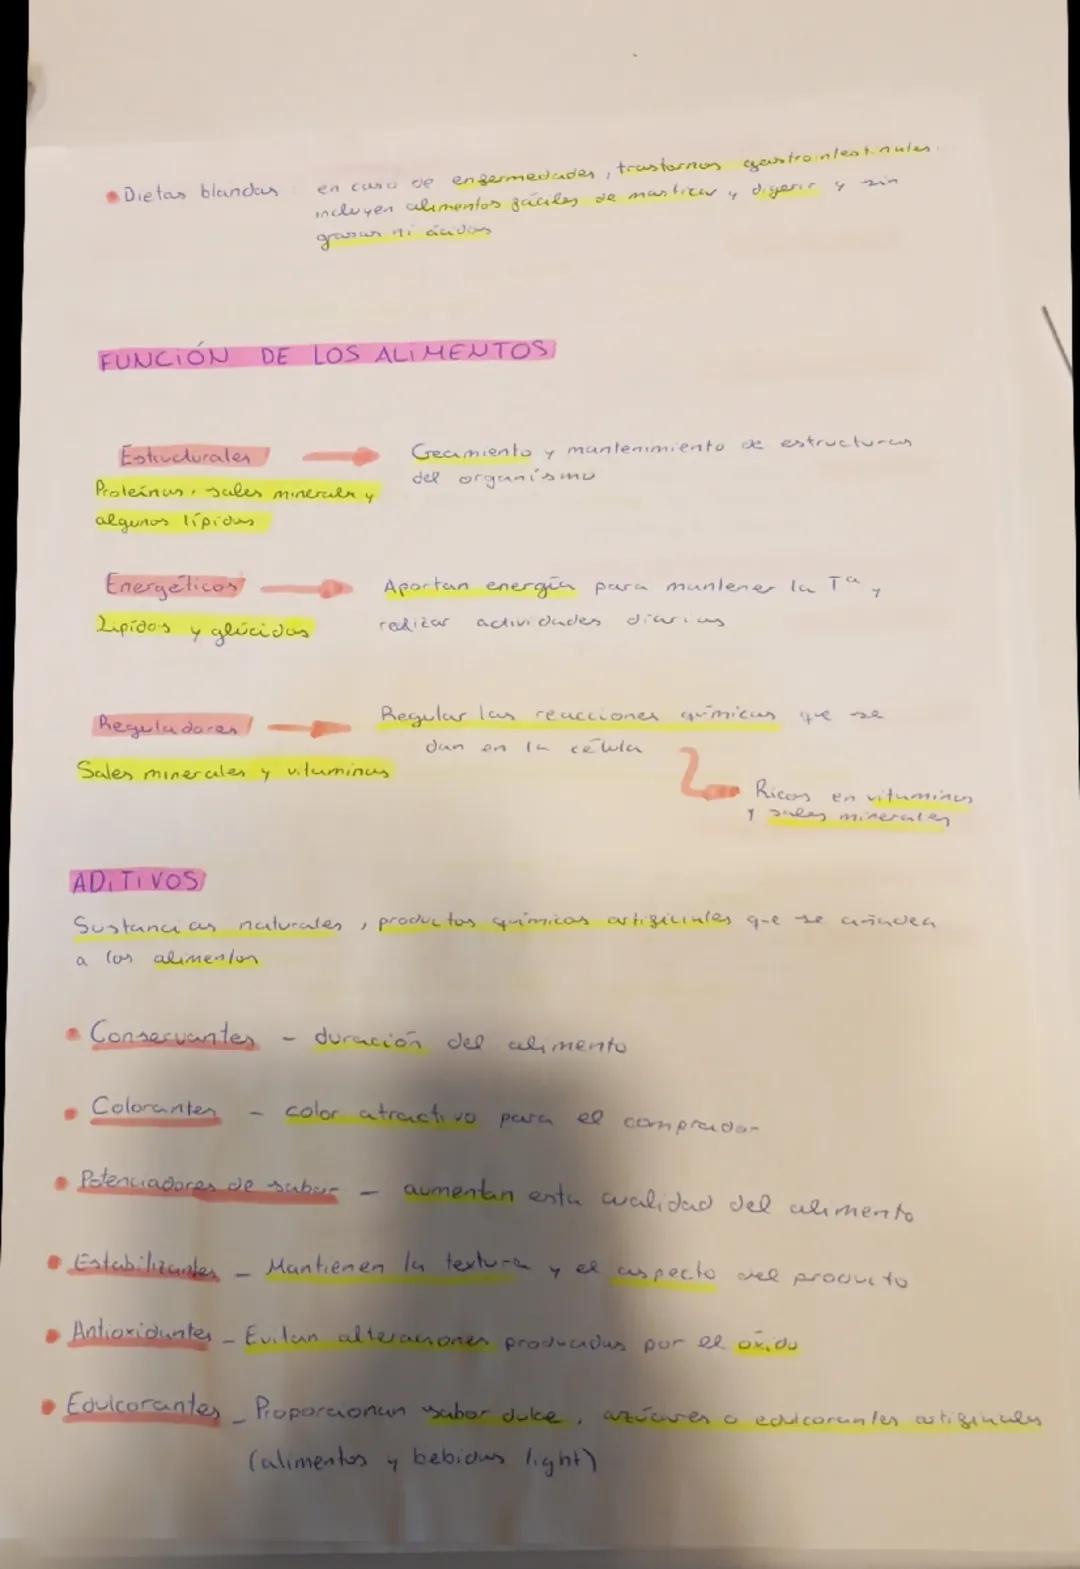 Dietas blandas : en caso de enfermedades, trastornos gastrointestinales.
incluyen alimentos fáciles de masticar y digerir y sin
grasas ni ácidos
FUNCIÓN DE LOS ALIMENTOS
Estructurales → Crecimiento y mantenimiento de estructuras
del organismo
Proteínas, sales minerales y
algunos lípidos
Energéticos → Aportan energía para mantener la Tª y
realizar actividades diarias
Lipidos y glúcidos
Reguladores → Regular las reacciones químicas que se
dan en la célula
Sales minerales y vitaminas
Ricos en vitaminas
y sales minerales
ADITIVOS
Sustancias naturales, productos químicos artificiales que se añaden
a los alimentos
Conservantes - duración del alimento
Colorantes - color atractivo para el comprador
Potenciadores de sabor - aumentan esta cualidad del alimento
Estabilizantes - Mantienen la textura y el aspecto del producto
Antioxidantes - Evitan alteraciones producidas por el óxido
Edulcorantes - Proporcionan sabor dulce, azúcares o edulcorantes artificiales
(alimentos y bebidas light)